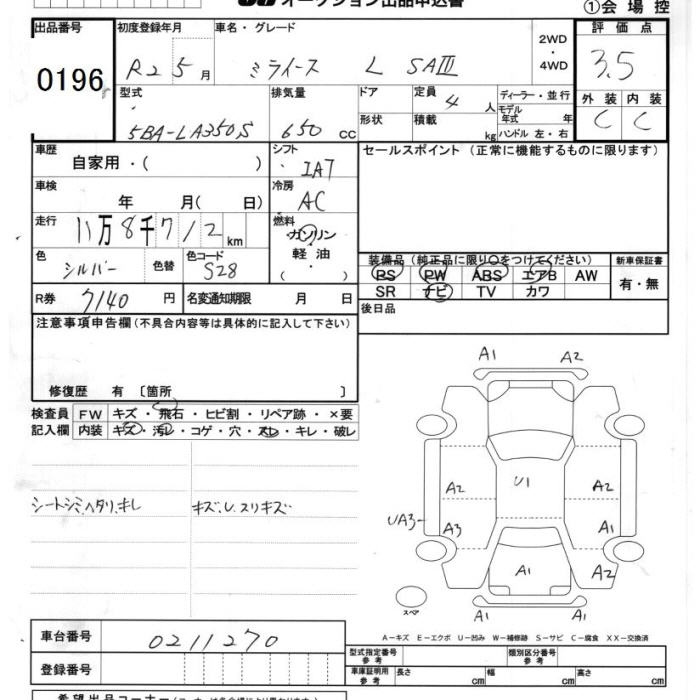 オークション出品申込書
①会場控
出品番号
0196
初度登録年月
R2 5月
車名・グレード
ミライース L SAⅢ
2WD
・
4WD
評価点
3.5
外装 内装
C C
型式
5BA-LA350S
排気量
650 cc
ドア
形状
定員 4 人
積載 kg
ディーラー・並行
モデル年式 年
ハンドル 左・右
車歴
自家用・( )
シフト
IAT
セールスポイント (正常に機能するものに限ります)
車検
年 月( 日)
冷房
AC
走行
11万8千712km
燃料
ガソリン
軽油
( ・ )
色
シルバー
色替
色コード
S28
装備品 (純正品に限り○をつけてください)
PS PW ABS エアB AW
SR ナビ TV カワ
新車保証書
有・無
R券 7140円
名変通知期限 月 日
後日品
注意事項申告欄 (不具合内容等は具体的に記入して下さい)
修復歴 有 〔箇所 〕
検査員記入欄
FW キズ・飛石・ヒビ割・リペア跡・×要
内装 キズ・汚レ・コゲ・穴・スレ・キレ・破レ
シートシミハタリ.キレ
キズ.U.スリキズ
A1 A2
A2 U1 A2
UA3 A3 A1
A1 A2
A1 A1
スペア
A－キズ E－エクボ U－凹み W－補修跡 S－サビ C－腐食 XX－交換済
車台番号 0211270
登録番号
型式指定番号 参考
類別区分番号 参考
車庫証明用 参考 長さ cm 幅 cm 高さ cm
希望出品コーナー